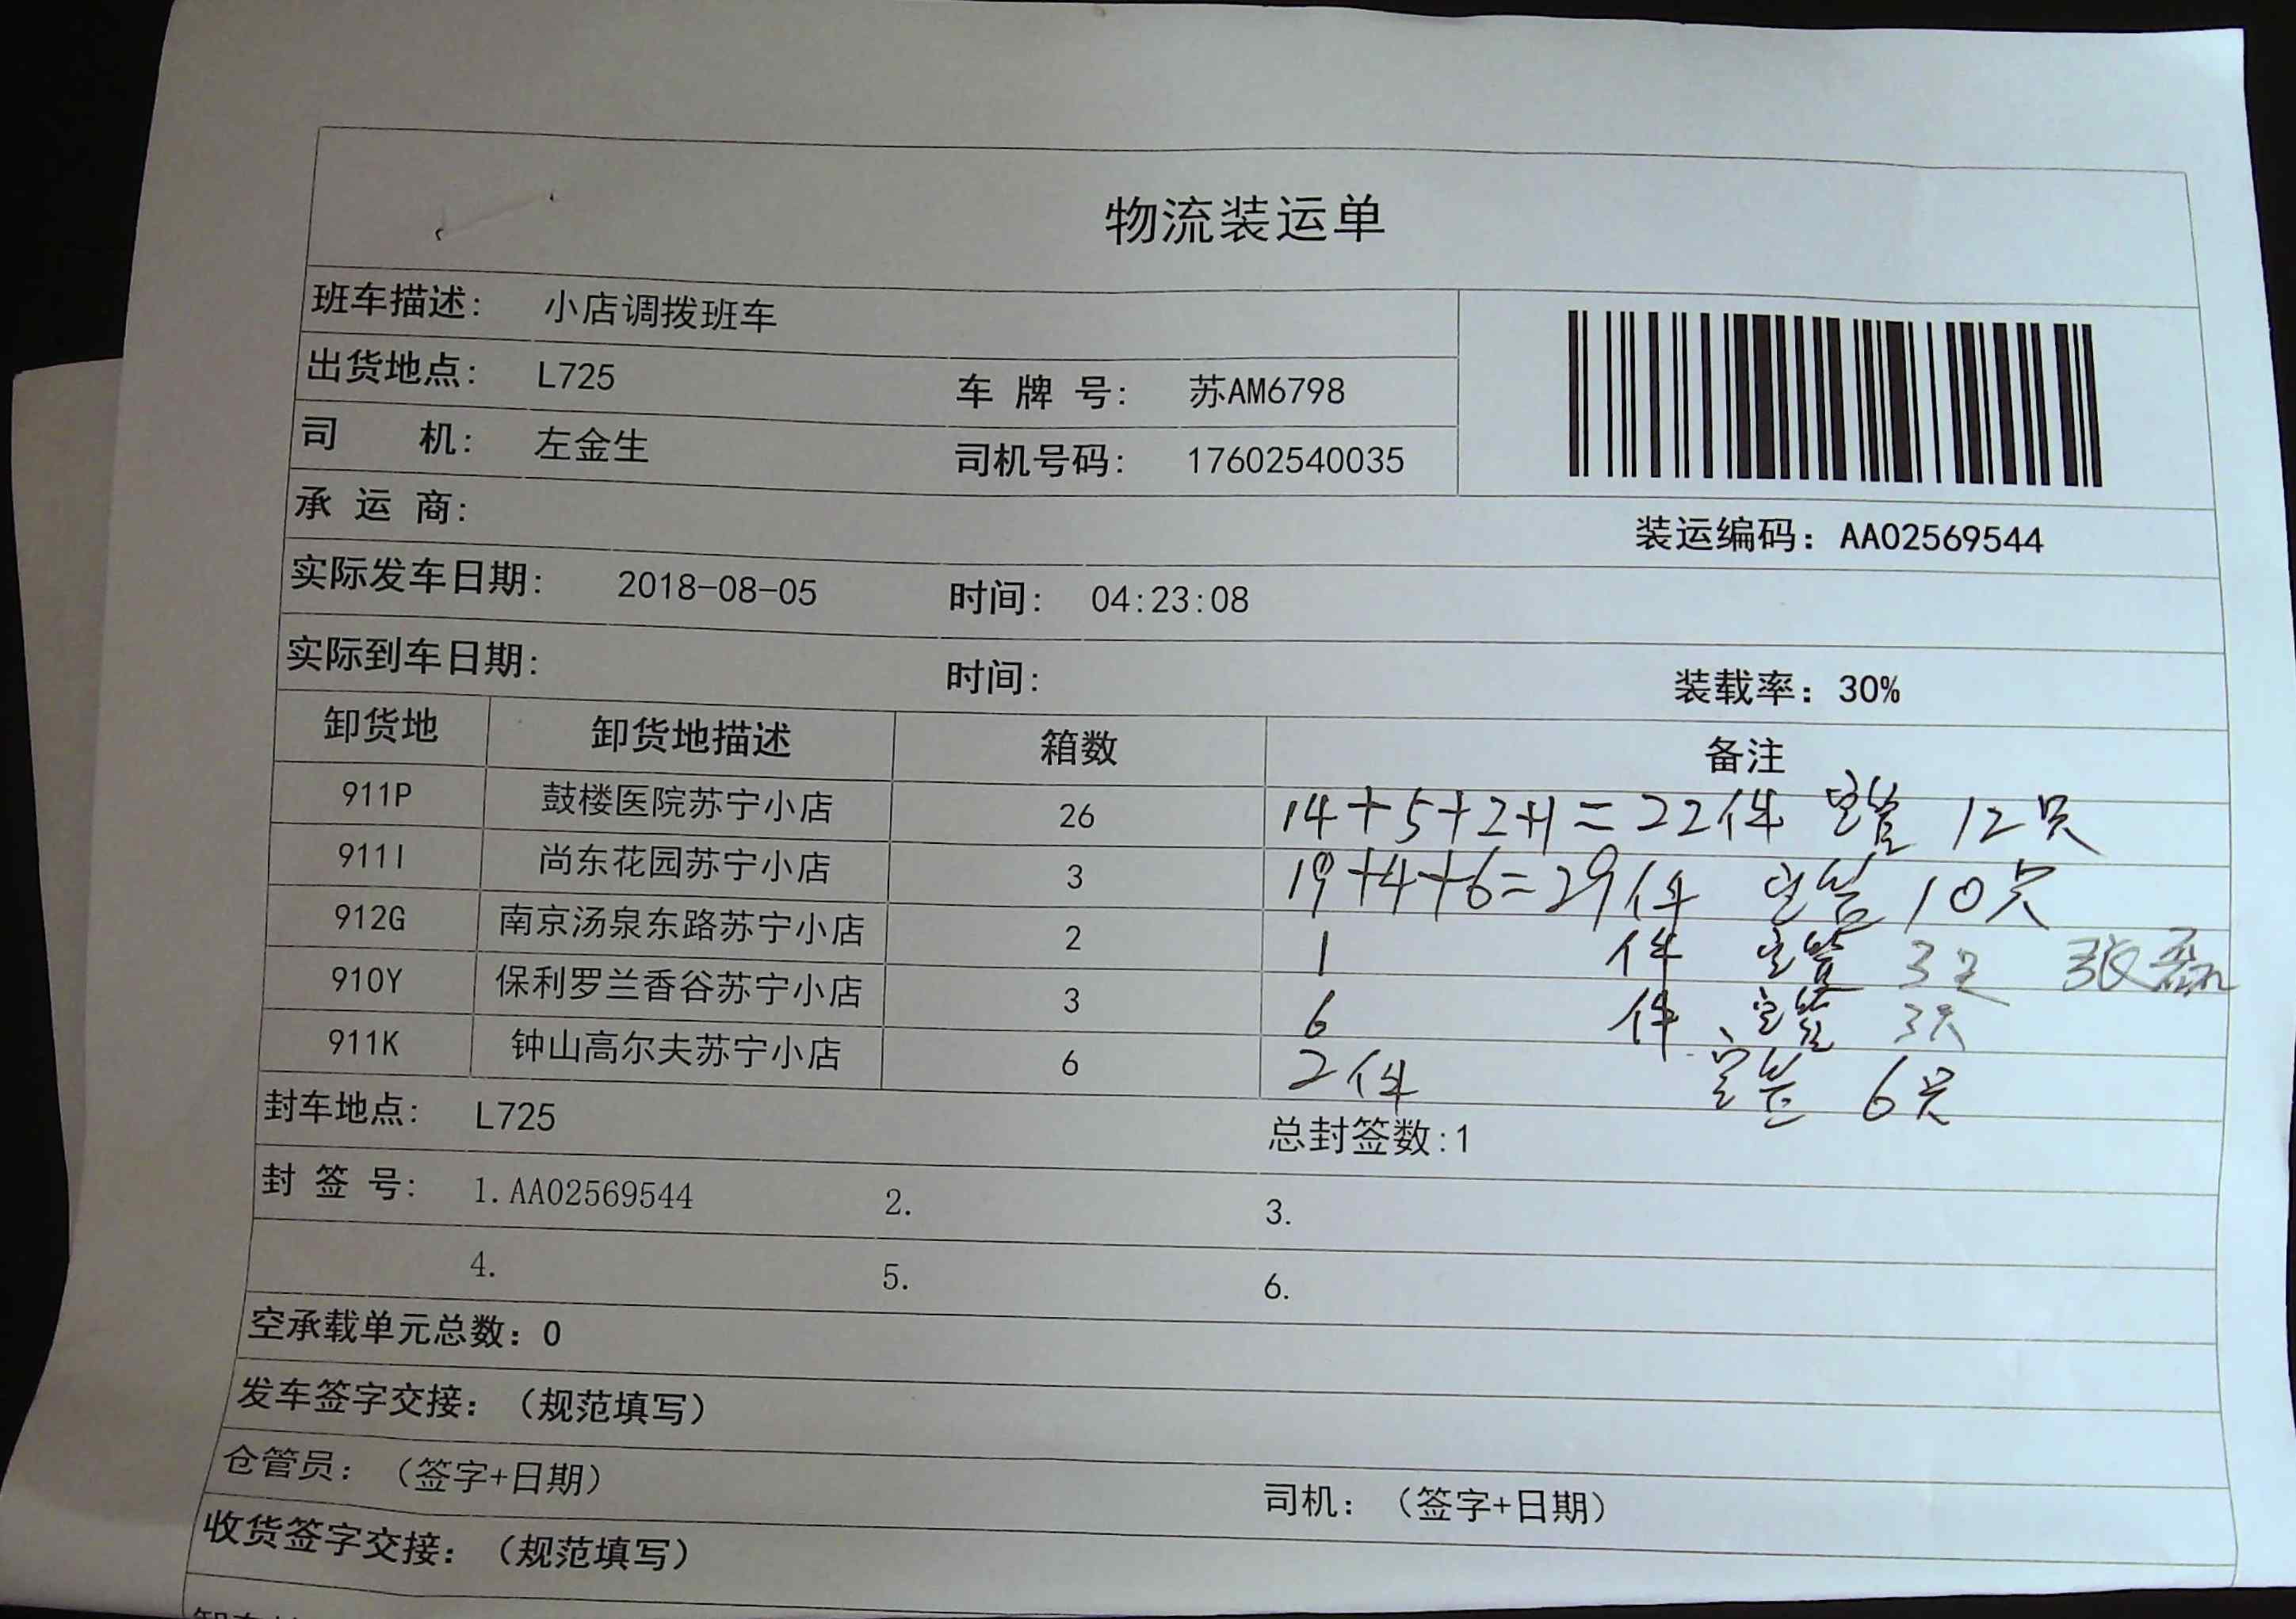 物流装运单
班车描述: 小店调拨班车
出货地点: L725 车牌号: 苏AM6798
司机: 左金生 司机号码: 17602540035
承运商:
装运编码: AA02569544
实际发车日期: 2018-08-05 时间: 04:23:08
实际到车日期: 时间: 装载率: 30%
卸货地 卸货地描述 箱数 备注
911P 鼓楼医院苏宁小店 26 14+5+2+1=22件 12只
911I 尚东花园苏宁小店 3 19+4+6=29件 10只
912G 南京汤泉东路苏宁小店 2 1 件 3只
910Y 保利罗兰香谷苏宁小店 3 6 件 3只
911K 钟山高尔夫苏宁小店 6 2件 6只
封车地点: L725 总封签数:1
封签号: 1.AA02569544 2. 3.
4. 5. 6.
空承载单元总数: 0
发车签字交接: (规范填写)
仓管员: (签字+日期) 司机: (签字+日期)
收货签字交接: (规范填写)